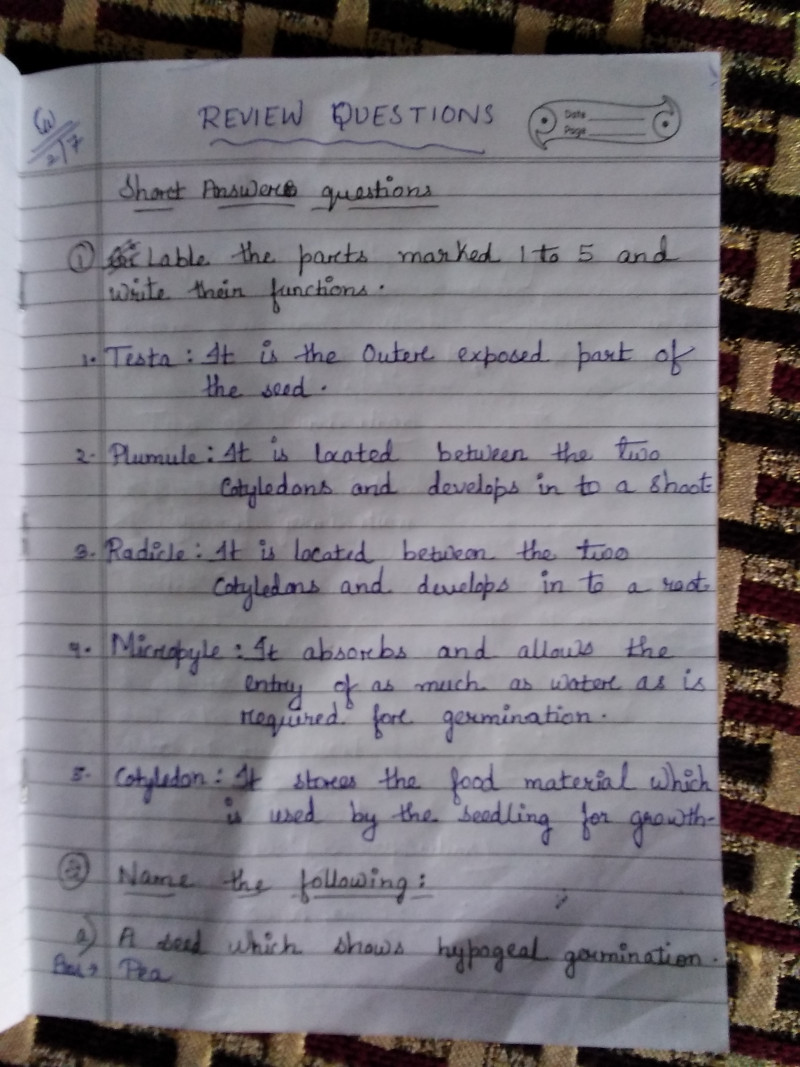 CW
2/7
REVIEW QUESTIONS
Date
Page
Short Answers questions
① Lable the parts marked 1 to 5 and
write their functions.
1. Testa : It is the Outer exposed part of
the seed.
2. Plumule : It is located between the two
Cotyledons and develops in to a shoot
3. Radicle : It is located between the two
Cotyledons and develops in to a root.
4. Micropyle : It absorbs and allows the
entry of as much as water as is
required for germination.
5. Cotyledon : It stores the food material which
is used by the seedling for growth.
② Name the following :
a) A seed which shows hypogeal germination.
Ans→ Pea